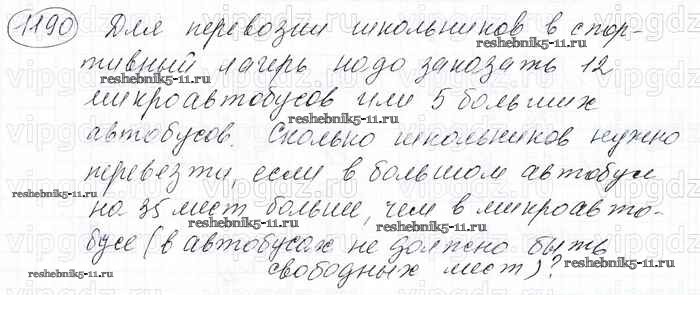 1190 Для перевозки школьников в спор-
тивный лагерь надо заказать 12
микроавтобусов или 5 больших
автобусов. Сколько школьников нужно
перевезти, если в большом автобусе
на 35 мест больше, чем в микроавто-
бусе (в автобусах не должно быть
свободных мест)?
reshebnik5-11.ru
reshebnik5-11.ru
reshebnik5-11.ru
reshebnik5-11.ru
reshebnik5-11.ru
reshebnik5-11.ru
reshebnik5-11.ru
reshebnik5-11.ru